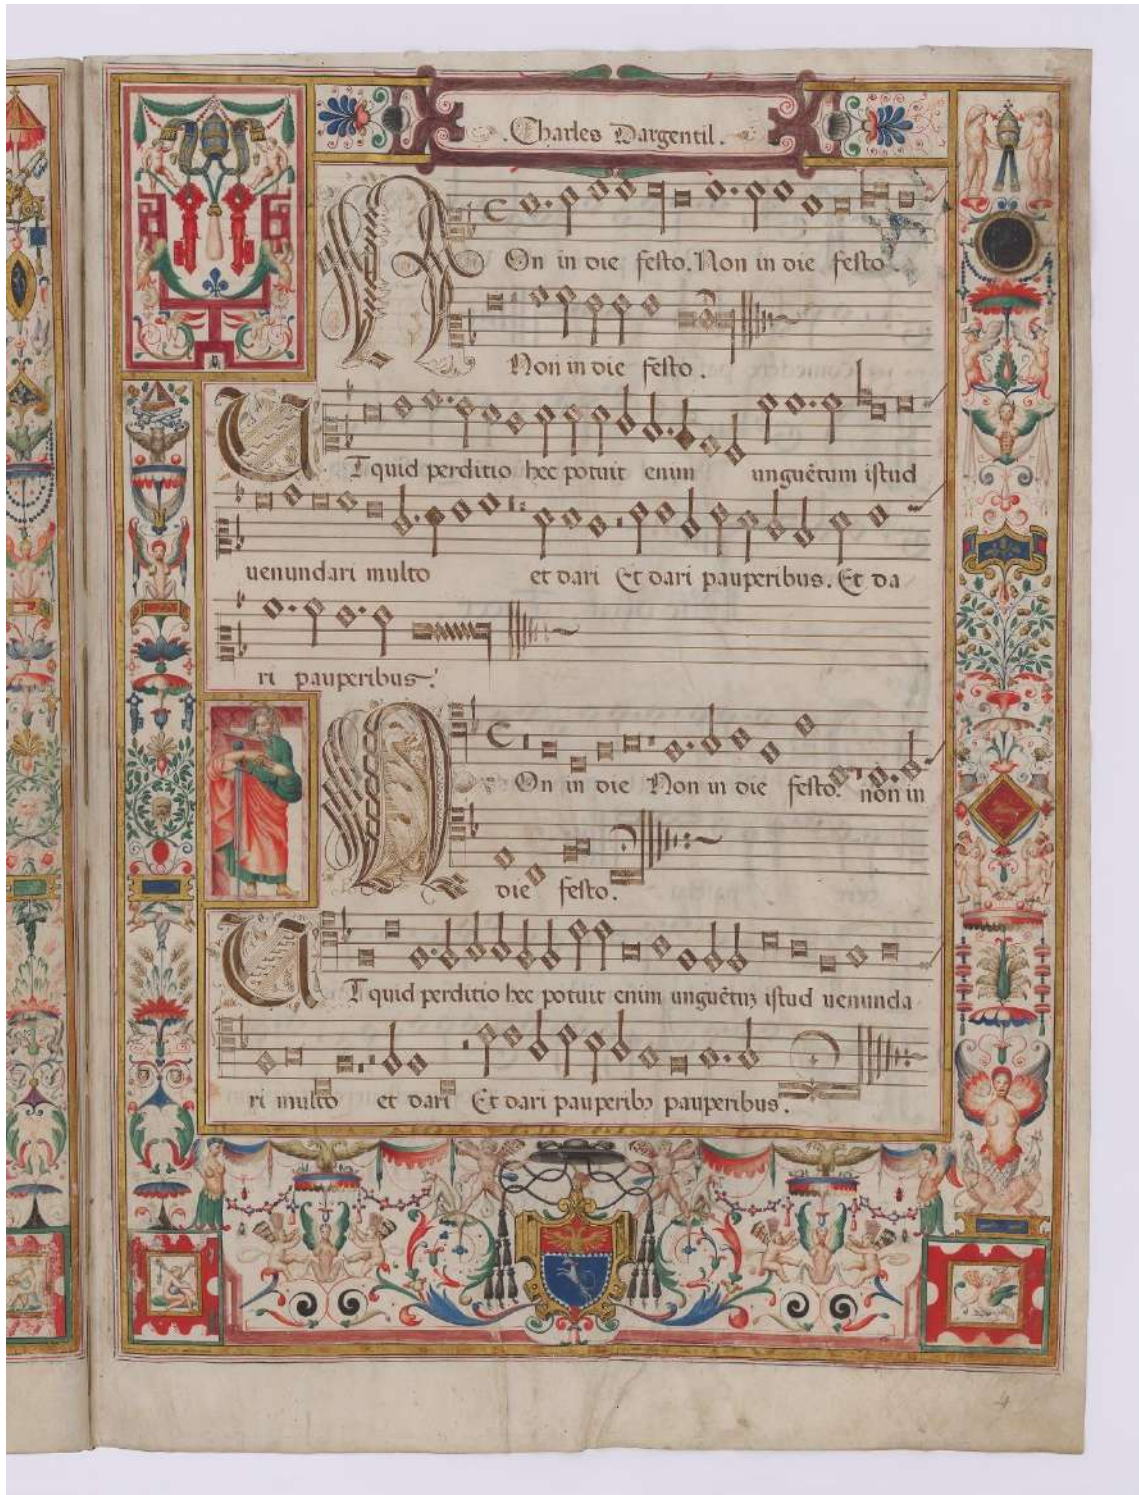 Charles Dargentil.
NOn in die festo. Non in die festo
Non in die festo.
UT quid perditio hec potuit enim unguẽtum istud
uenundari multo et dari Et dari pauperibus. Et da
ri pauperibus.
NOn in die Non in die festo. non in
die festo.
UT quid perditio hec potuit enim unguẽtuʒ istud uenunda
ri multo et dari Et dari pauperibꝫ pauperibus.
4